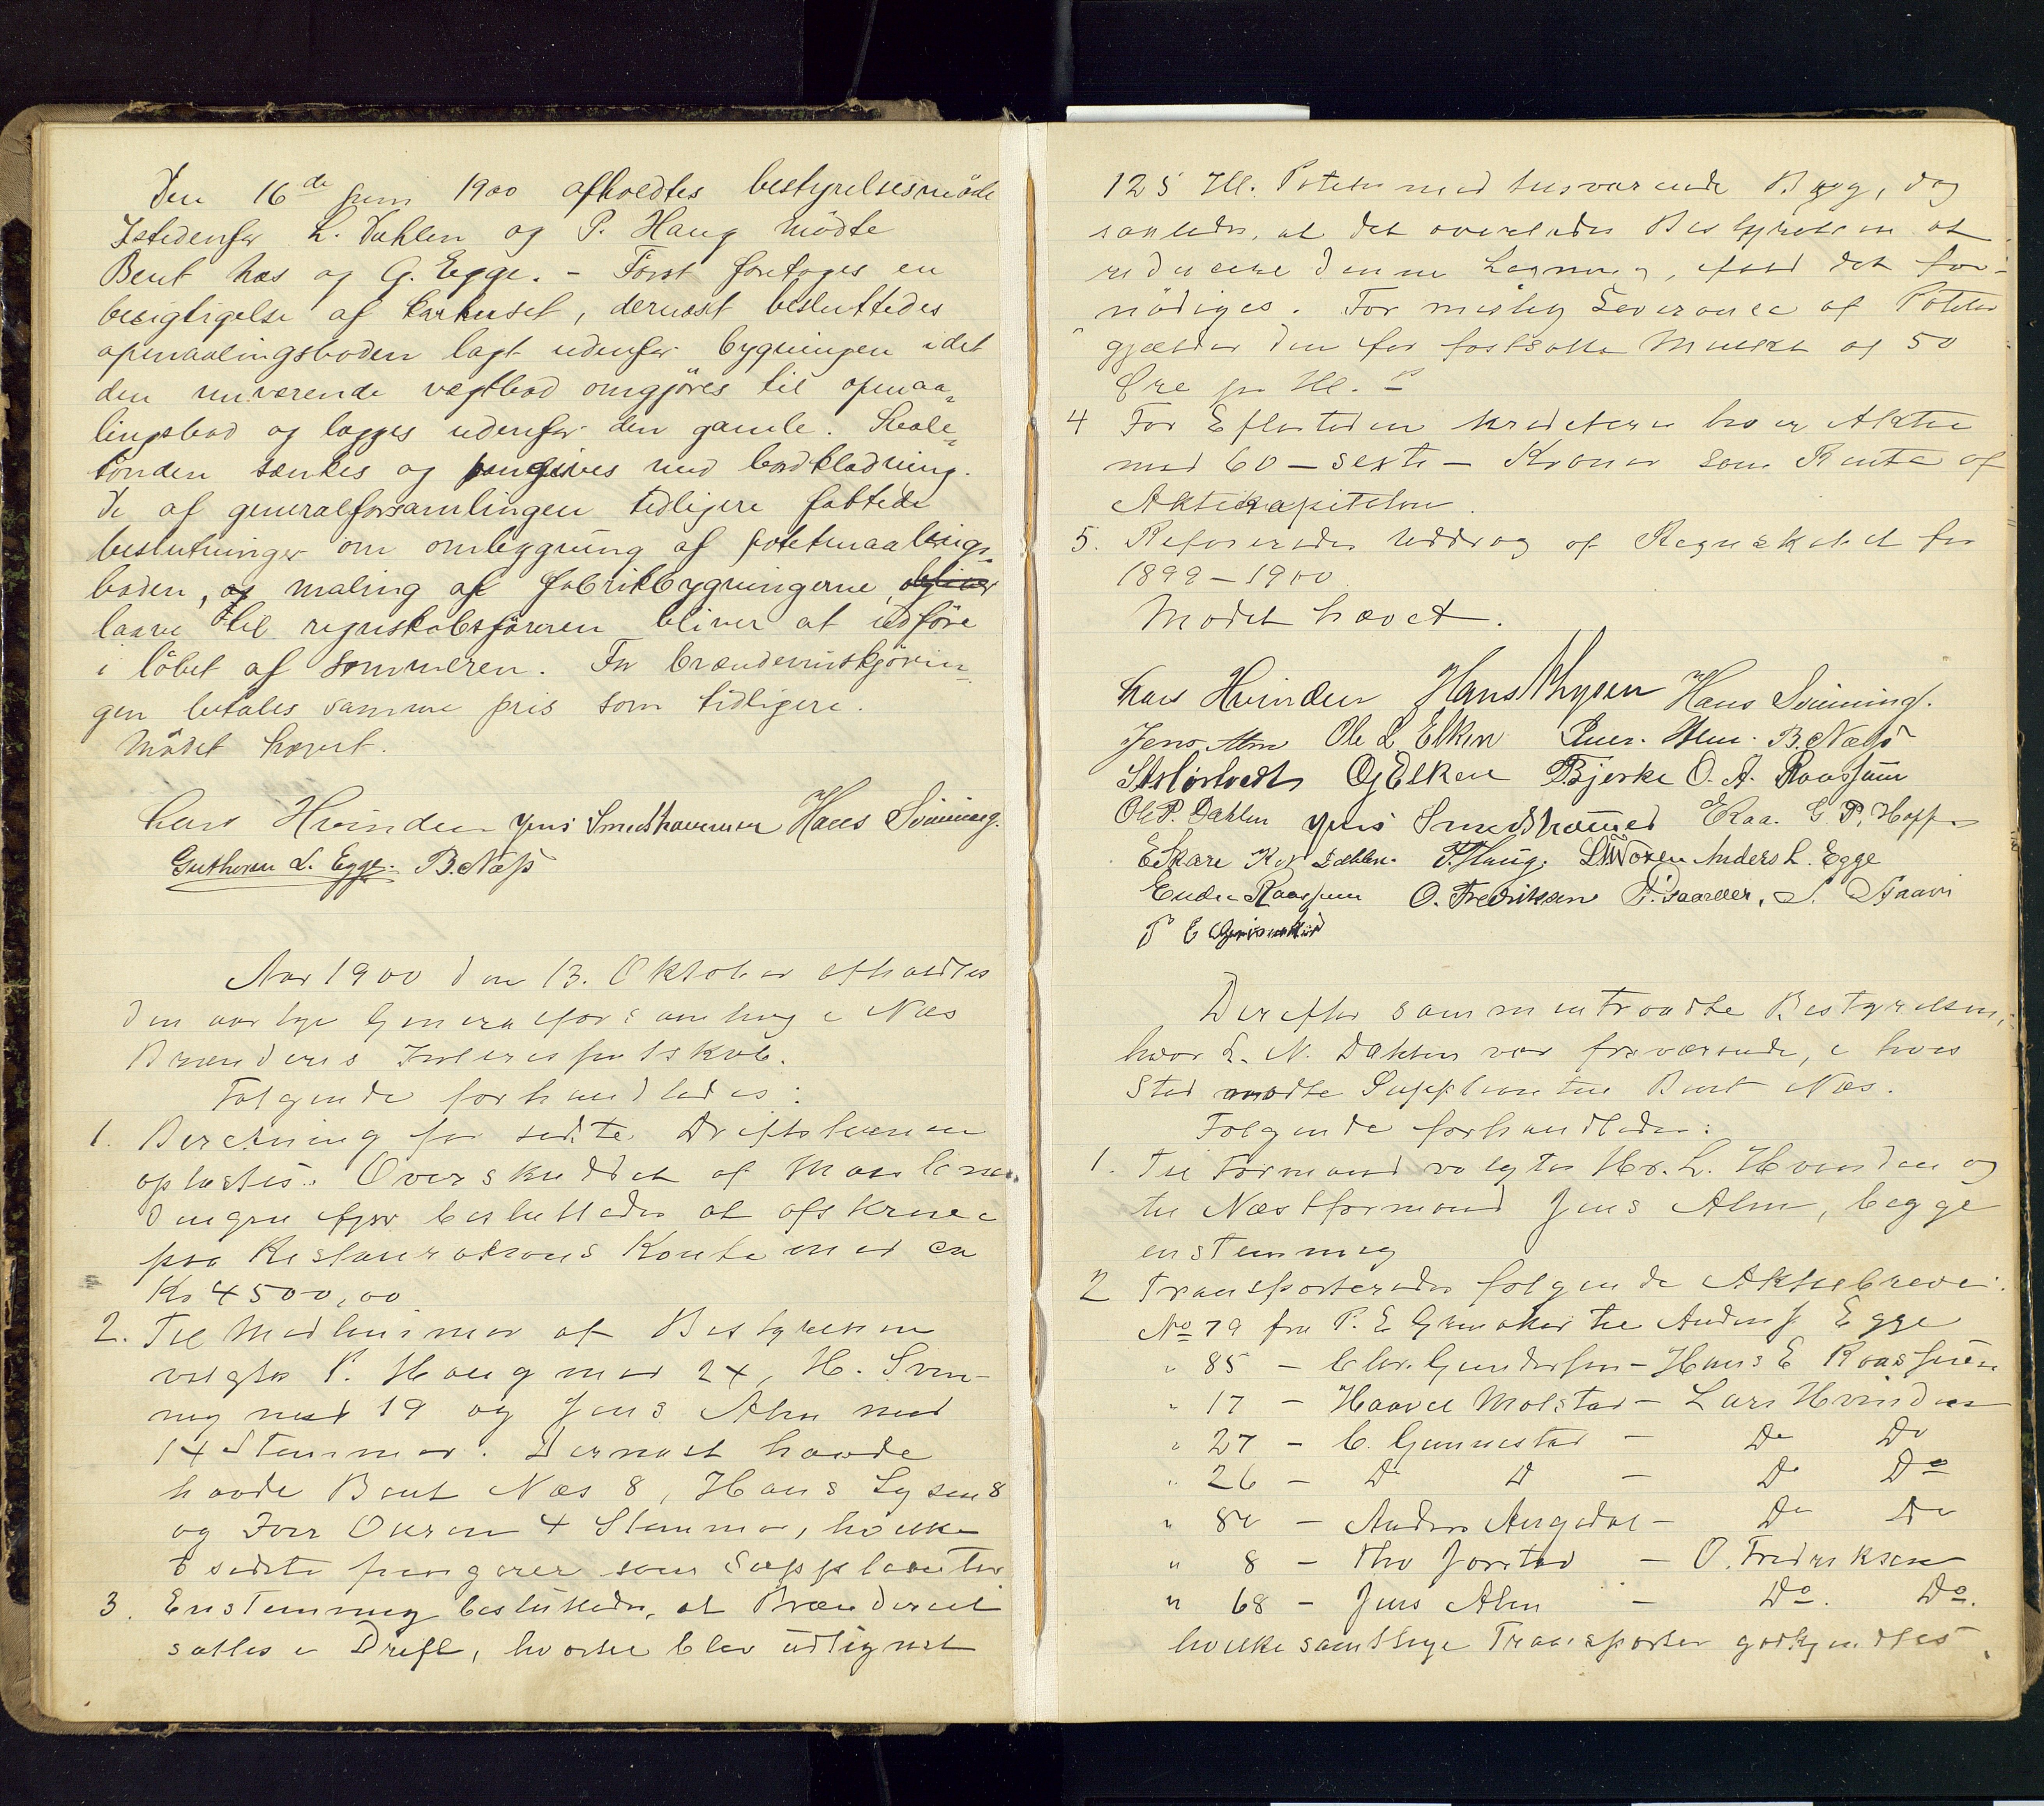 Den 16de juni 1900 afholdtes bestyrelsesmøde
Istedenfor L. Dahlen og P. Haug mødte
Bent Næs og G. Egge. – Først foretoges en
besigtigelse af karhuset, dernæst besluttedes
opmaalingsboden lagt udenfor bygningen idet
den nuværende vægtbod omgjøres til opmaa„
lingsbod og lægges udenfor den gamle. Skole„
tønden sænkes og omgives med bordklædning.
De af generalforsamlingen tidligere fattede
beslutninger om omlægning af potetmaalings„
boden, og maling af fabrikbygningerne,
laane til regnskabsføreren bliver at udføre
i løbet af sommeren. For brændevinskjørin„
gen betales samme pris som tidligere.
Mødet hævet.
Lars Hvinden Jens Smedshammer Hans Svinning.
Guthorm L. Egge. B. Næss
Aar 1900 den 13. Oktober afholdtes
den aarlige Generalforsamling i Næs
Brænderis Interessentskab.
Følgende forhandledes:
1. Beretning for sidste Driftstermin
oplæstes. Overskuddet af
besluttedes at afskrive
paa Restaurations Konto med ca
Kr 4500,00
2. Til Medlemmer af Bestyrelsen
valgtes P. Haug med 24, H. Svin-
ning med 19 og Jens Alm med
14 Stemmer. Dernæst havde
havde Bent Næs 8, Hans Lysen 8
og Iver Ouren 4 Stemmer, hvilke
3 sidste fungerer som Supplanter
3. Enstemmig besluttedes, at Brænderiet
sættes i Drift, hvortil blev udlignet
125 Hl. Poteter med tilsvarende Byg, dog
saaledes, at det overlades Bestyrelsen at
reducere denne Ligning, ifald det for-
nødiges. For mislig Leverance af Poteter
gjælder den før fastsatte Mulkt af 50
Øre pr Hl.
4 For Eftertiden krediteres hver Aktie
med 60 – sexti – Kroner som Rente af
Aktiekapitalen.
5. Refereredes Uddrag af Regnskabet for
1899 – 1900
Mødet hævet.
Lars Hvinden Hans Lysen Hans Svinning.
Jens Alm Ole L. Elken B. Næss
O G Elken Bjerke O. A. Raassum
Ole P. Dahlen Jens Smedshammer G. P. Hoff
E Skare Dahlen. P. Haug. Anders L. Egge
Raassum O. Fredriksen
P E
Derefter sammentraadte Bestyrelsen,
hvor L. N. Dahlen var fraværende, i hvis
Sted mødte Supplanten Bent Næs.
Følgende forhandledes:
1. Til Formand valgtes Hr. L. Hvinden og
til Næstformand Jens Alm, begge
enstemmig
2 Transporteredes følgende Aktiebreve:
No 79 fra P. E. Grinaker til Anders J Egge
„ 85 – Chr. Gundersen – Hans E Raassum
„ 17 – Haavel Molstad – Lars Hvinden
„ 27 – C. Gunnestad – Do Do
„ 26 – Do D – Do Do
„ 80 – Anders – Do Do
„ 8 – Jorstad – O. Fredriksen
„ 68 – Jens Alm – Do. Do.
hvilke samtlige Transporter godkjendtes.